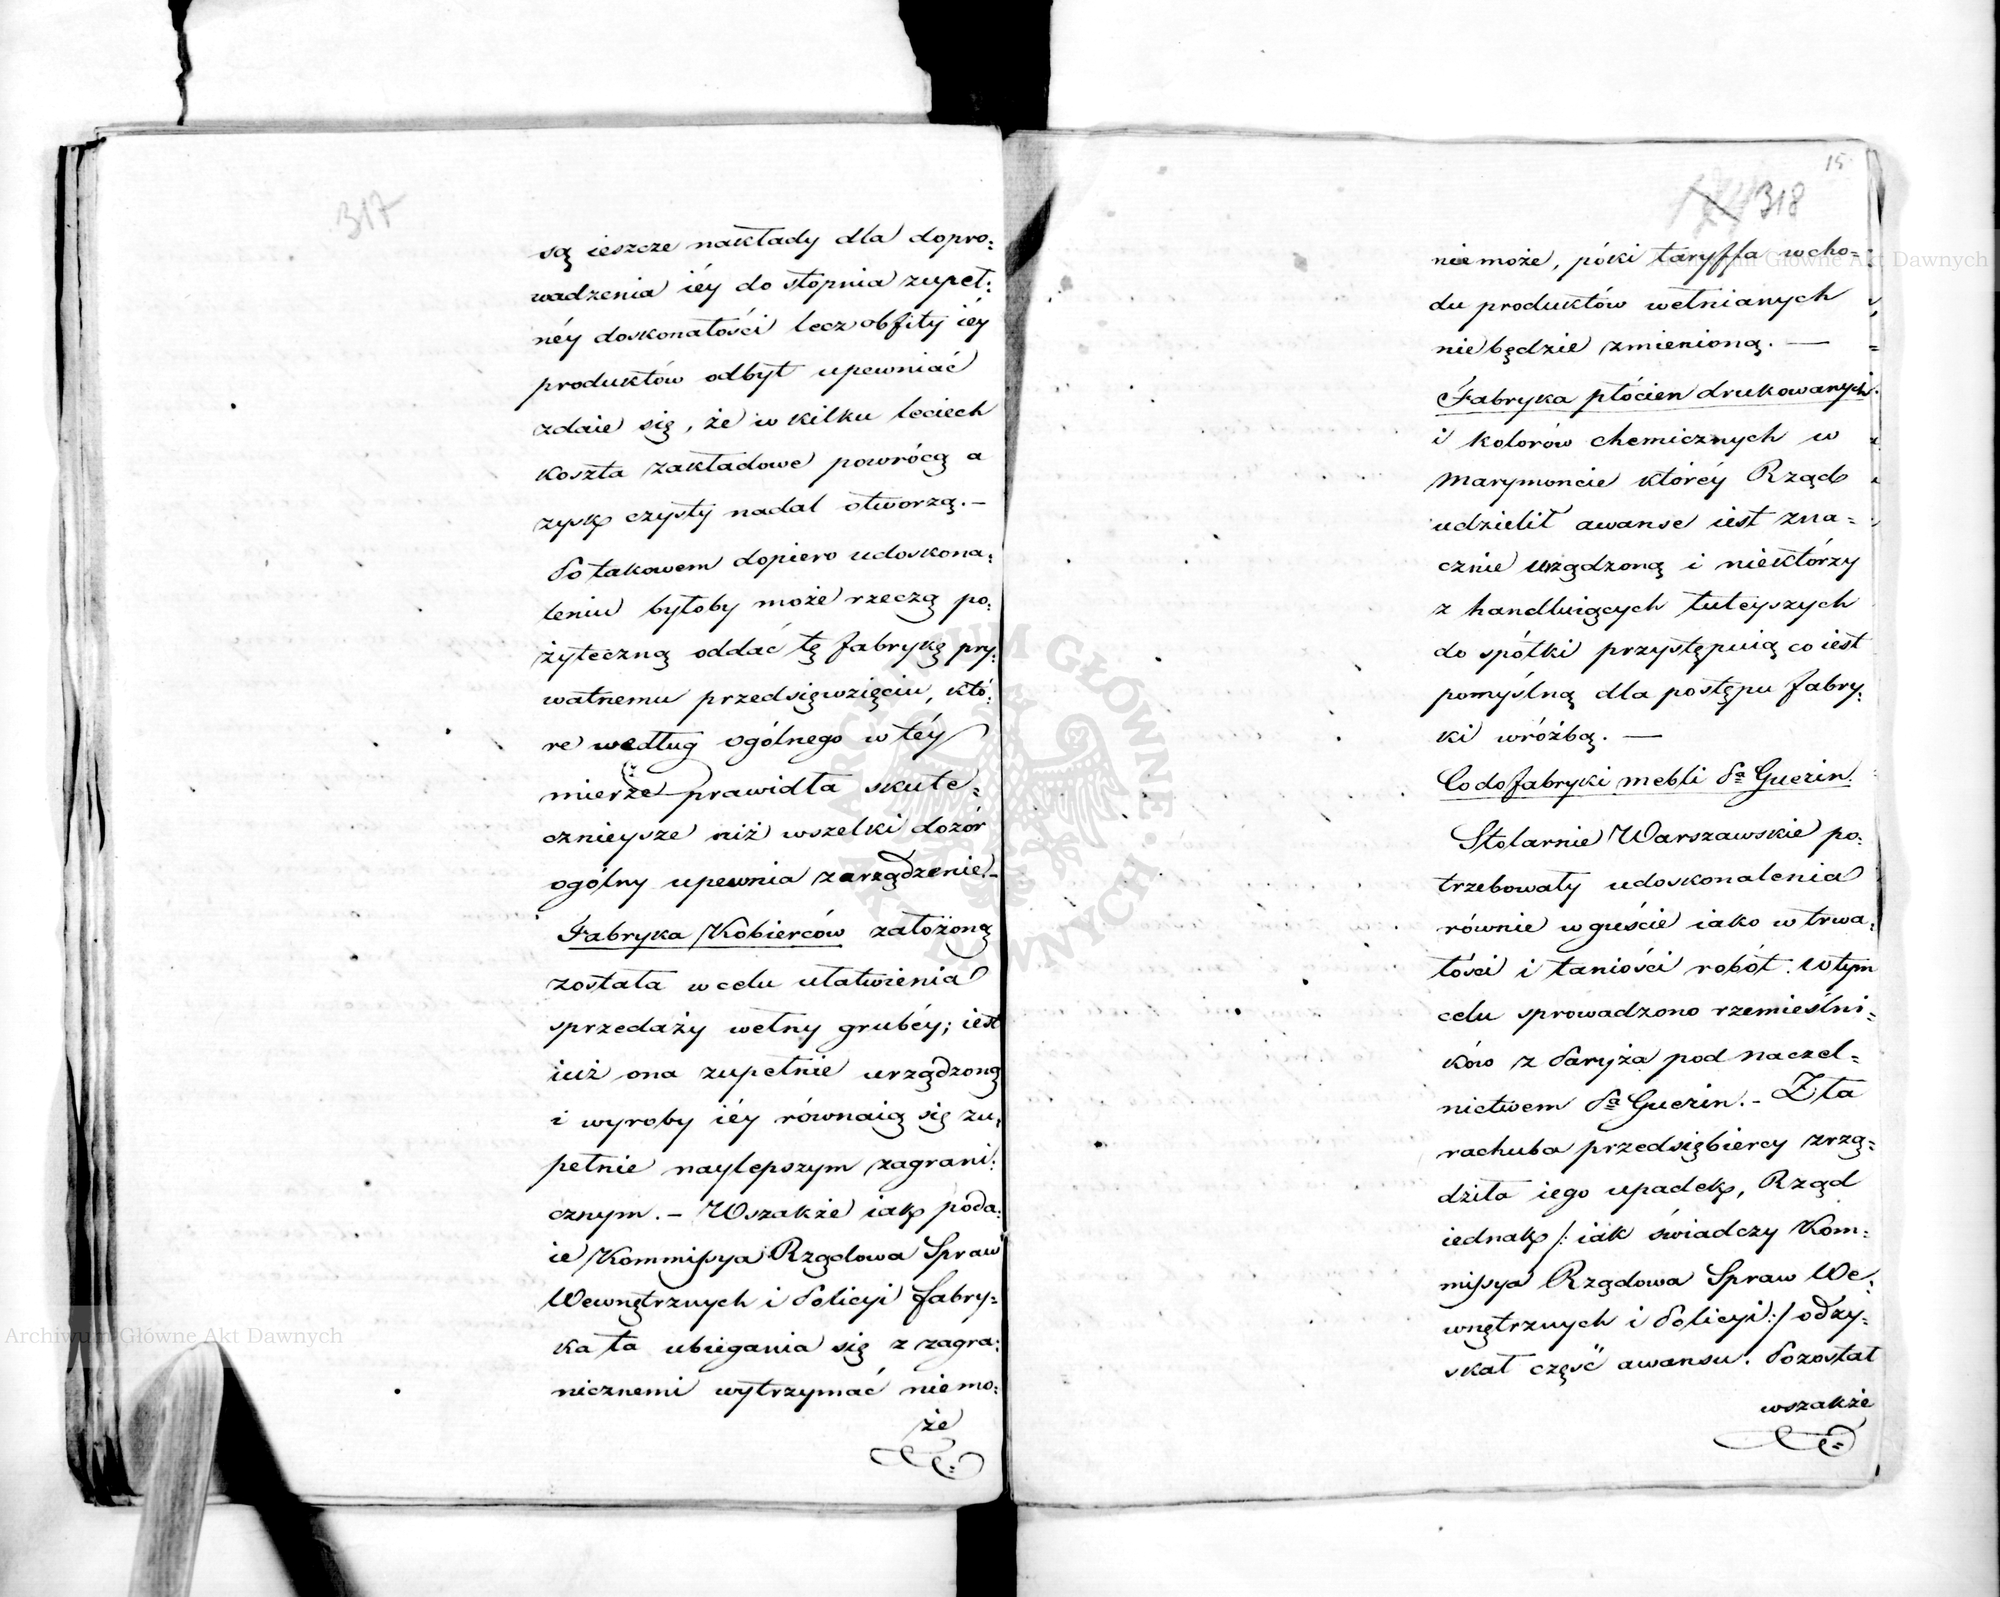 317
są ieszcze nakłady dla dopro=
wadzenia iéy do stopnia zupeł=
néy doskonałości lecz obfity iéy
produktów odbyt upewniać
zdaie się, że w kilku leciech
koszta zakładowe powrócą a
zysk czysty nadal otworzą. —
Po takowem dopiero udoskona=
leniu byłoby może rzeczą po=
żyteczną oddać tę fabrykę pry=
watnemu przedsięwzięciu, któ=
re według ogólnego w téy
mierze prawidła skute=
cznieysze niż wszelki dozór
ogólny upewnia zarządzenie. —
Fabryka Kobierców założoną
została w celu ułatwienia
sprzedaży wełny grubéy; iest
iuż ona zupełnie urządzoną
i wyroby iéy równaią się zu=
pełnie naylepszym zagrani=
cznym. — Wszakże iak poda=
ie Kommissya Rządowa Spraw
Wewnętrznych i Policyi fabry=
ka ta ubiegania się z zagra=
nicznemi wytrzymać niemo=
że
15
318
niemoże, póki taryffa wcho=
du produktów wełnianych
niebędzie zmienioną. —
Fabryka płócien drukowanych
i kolorów chemicznych w
Marymoncie któréy Rząd
udzielił awanse iest zna=
cznie urządzoną i niektórzy
z handluiących tuteyszych
do spółki przystępuią co iest
pomyślną dla postępu fabry=
ki wróżbą. —
Co do fabryki mebli Pa Guerin.
Stolarnie Warszawskie po=
trzebowały udoskonalenia
równie w guście iako w trwa=
łości i taniości robót. W tym
celu sprowadzono rzemieślni=
ków z Paryża pod naczel=
nictwem Pa Guerin. — Zła
rachuba przedsiębiercy zrzą=
dziła iego upadek, Rząd
iednak /: iak świadczy Kom=
missya Rządowa Spraw We=
wnętrznych i Policyi :/ odzy=
skał część awansu. Pozostał
wszakże
Archiwum Główne Akt Dawnych
Archiwum Główne Akt Dawnych
ARCHIWUM GŁÓWNE AKT DAWNYCH